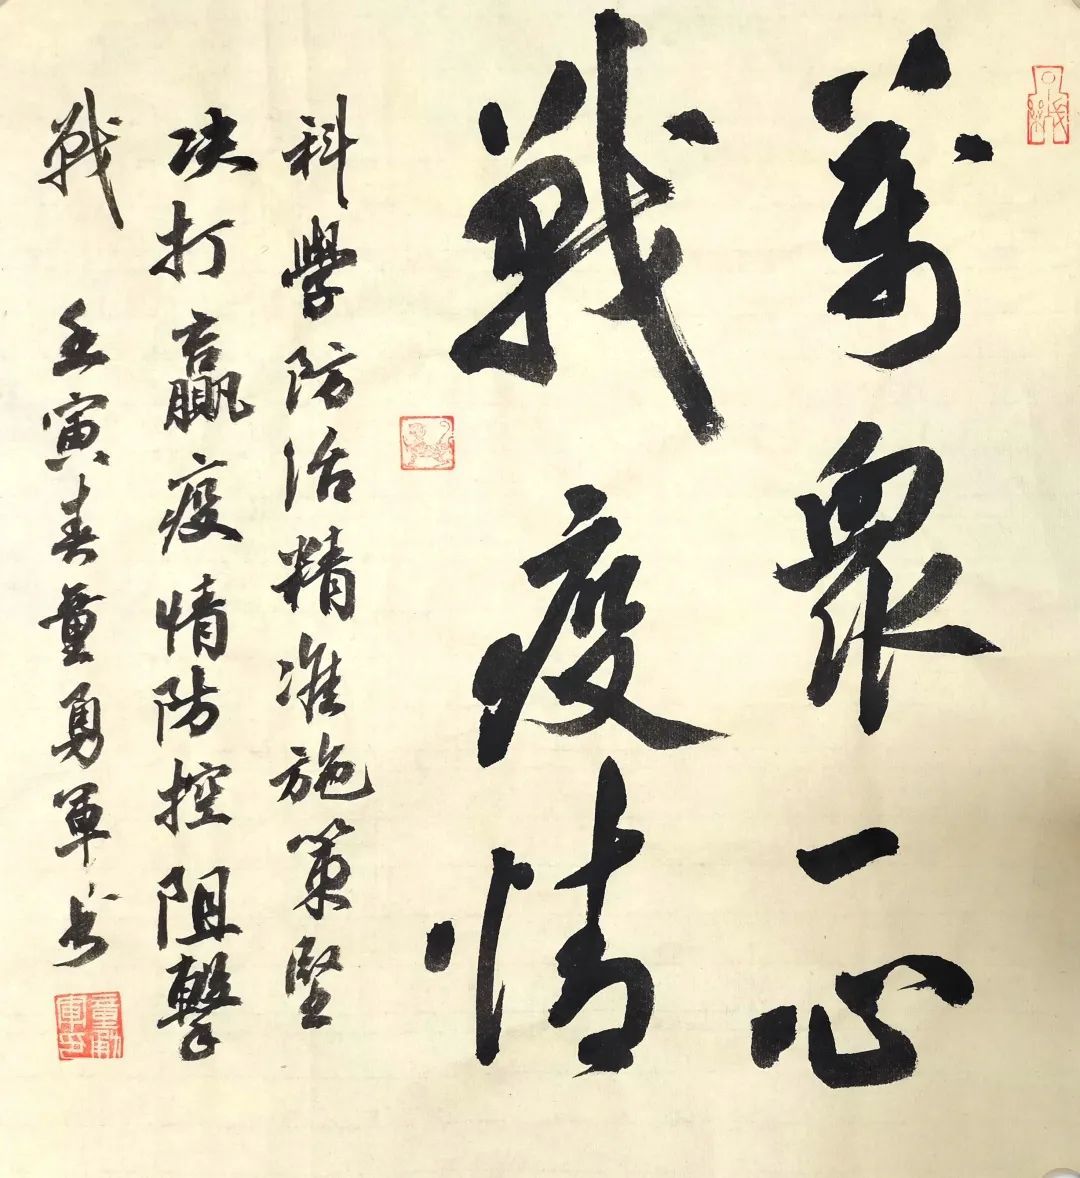 萬眾一心
戰疫情
科學防治精准施策堅
决打贏疫情防控阻擊
戰 壬寅春童勇軍书
童勇軍印